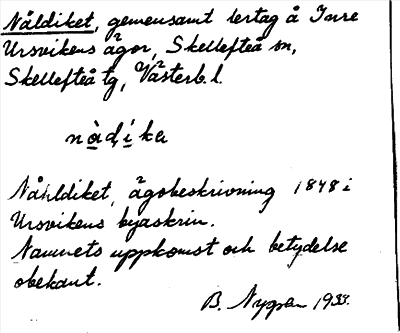 Nåldiket, gemensamt lertag å Inre
Ursvikens ägor, Skellefteå sn,
Skellefteå tg, Västerb. l.
nàd,íka
Nåhldiket, ägobeskrivning 1848 i
Ursvikens byaskrin.
Namnets uppkomst och betydelse
obekant.
B. Nygren 1933.